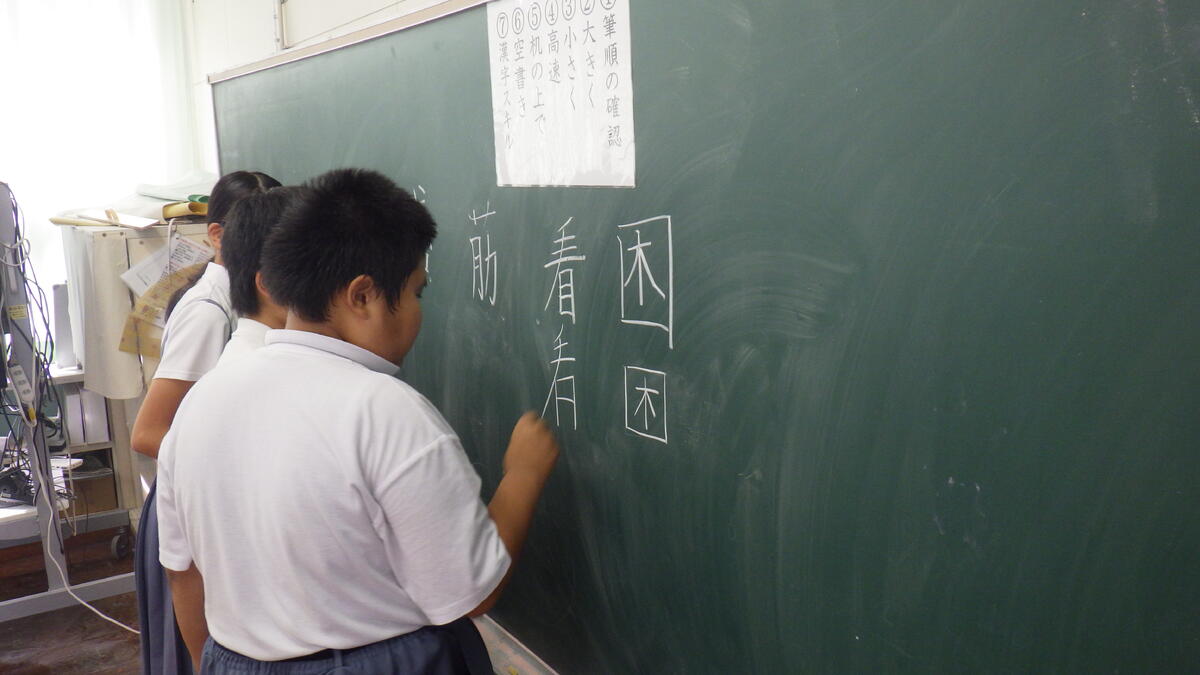 ①筆順の確認
②大きく
③小さく
④高速
⑤机の上で
⑥空書き
⑦漢字スキル
困
困
看
看
筋